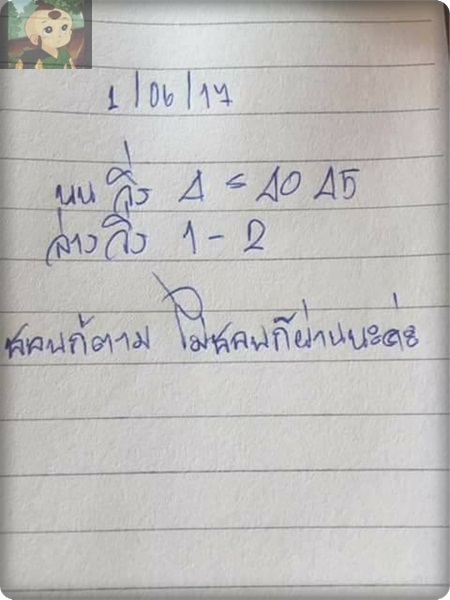 1/06/17
บน วิ่ง 4 = 40 45
ล่าง วิ่ง 1 - 2
ชอบก้ตาม ไม่ชอบก้ผ่านนะค่ะ